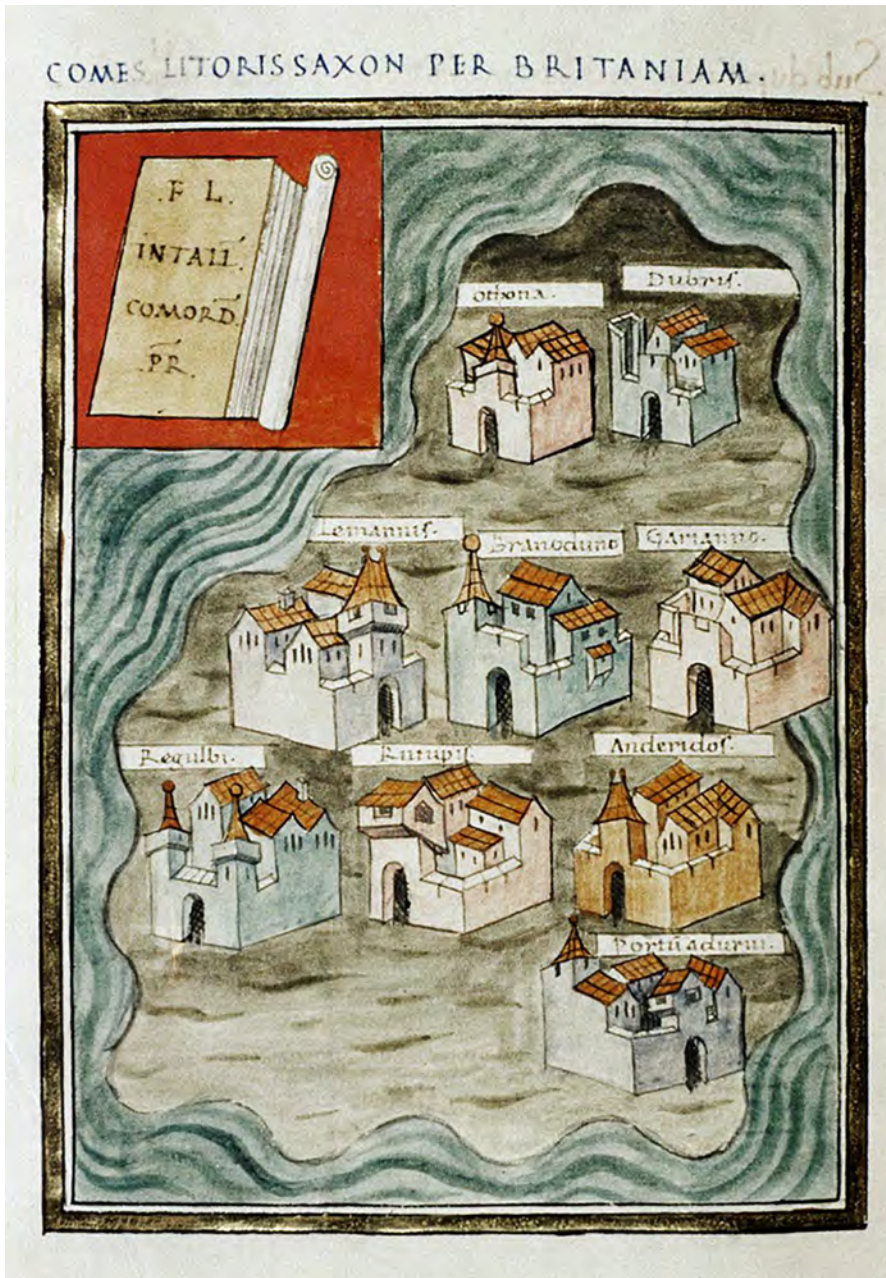 COMES LITORIS SAXON PER BRITANIAM.
.F L.
INTALL.
COMORD.
.PR.
Othona. Dubris.
Lemannis. Branoduno Garianno.
Regulbi. Rutupis. Anderidos.
Portū adurni.